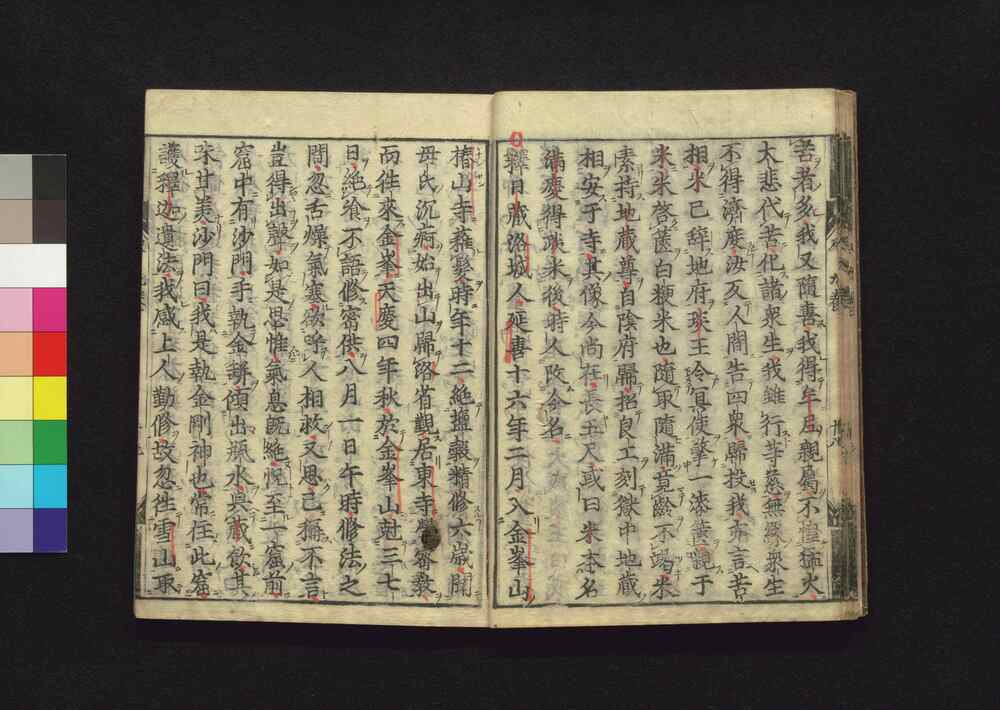 苦者多我又隨喜我得年月親屬不
大悲代苦化諸衆生我雖行慈無緣衆生
不得濟度汝反人間告四衆歸投我亦言苦
相米已辭地府琰王令冥使擎一漆篋親于
米米啓篋白粳米也隨取隨滿竟齡不竭米
素持地藏尊自陰府歸招良工刻獄中地藏
相安于寺其像今尚在長五尺或曰米本名
滿慶得米後時人改今名
釋日藏洛城人延喜十六年二月入金峯山
椿山寺薙髮時年十二絶鹽穀精修六歲聞
母氏沉痾始出山歸洛省覲居東寺密教
而往來金峯天慶四年秋於金峯山尅三七
日絶飡不語修密供八月一日午時修法之
間忽舌燥氣塞欲呼人相救又思已稱不言
豈得出聲如是思惟氣息既絶况至一窟前
窟中有沙門手執金缾傾出瓶水與藏飲其
味甘美沙門曰我是執金剛神也常住此窟
護釋迦遺法我感上人勤修故忽往雪山取